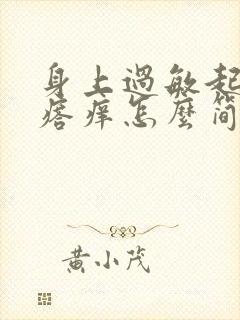 身上过敏起
痞痒怎麼简
黄小茂